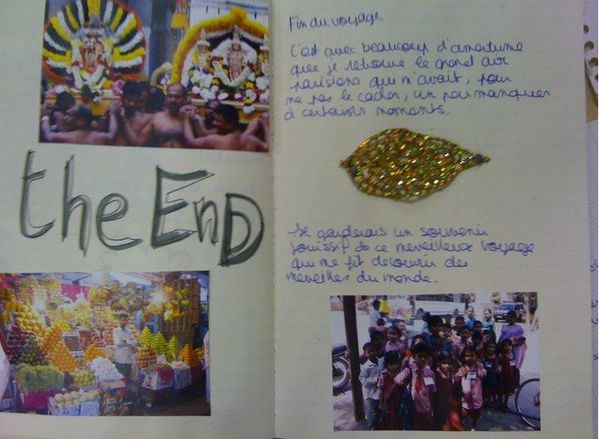 the EnD
Fin du voyage
C'est avec beaucoup d'amertume
que je retrouve le grand air
parisien qui m'avait, pour
ne pas le cacher, un peu manquer
à certains moments.
Je garderais un souvenir
jouissif de ce merveilleux voyage
qui me fit découvrir des
merveilles du monde.